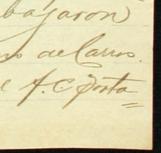 bajaron
no de Carros.
e A. C. Costa